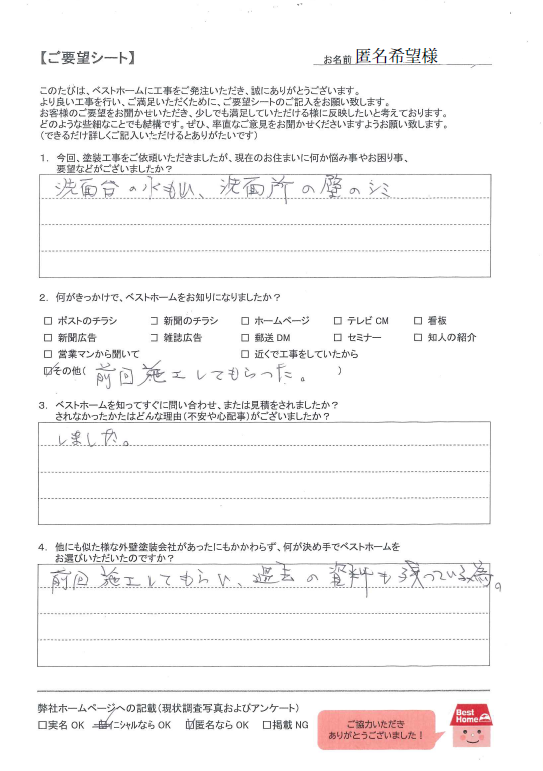 【ご要望シート】
お名前 匿名希望様
このたびは、ベストホームに工事をご発注いただき、誠にありがとうございます。
より良い工事を行い、ご満足いただくために、ご要望シートのご記入をお願い致します。
お客様のご要望をお聞かせいただき、少しでも満足していただける様に反映したいと考えております。
どのような些細なことでも結構です。ぜひ、率直なご意見をお聞かせくださいますようお願い致します。
（できるだけ詳しくご記入いただけるとありがたいです）
1. 今回、塗装工事をご依頼いただきましたが、現在のお住まいに何か悩み事やお困り事、
要望などがございましたか？
洗面台の水もれ、洗面所の壁のシミ
2. 何がきっかけで、ベストホームをお知りになりましたか？
□ ポストのチラシ □ 新聞のチラシ □ ホームページ □ テレビCM □ 看板
□ 新聞広告 □ 雑誌広告 □ 郵送DM □ セミナー □ 知人の紹介
□ 営業マンから聞いて □ 近くで工事をしていたから
☑その他( 前回施工してもらった。 )
3. ベストホームを知ってすぐに問い合わせ、または見積をされましたか？
されなかったかたはどんな理由（不安や心配事）がございましたか？
しました。
4. 他にも似た様な外壁塗装会社があったにもかかわらず、何が決め手でベストホームを
お選びいただいたのですか？
前回施工してもらい、過去の資料も残っている為。
弊社ホームページへの記載（現状調査写真およびアンケート）
□実名OK ☑イニシャルならOK ☑匿名ならOK □掲載NG
ご協力いただき
ありがとうございました！
Best
Home